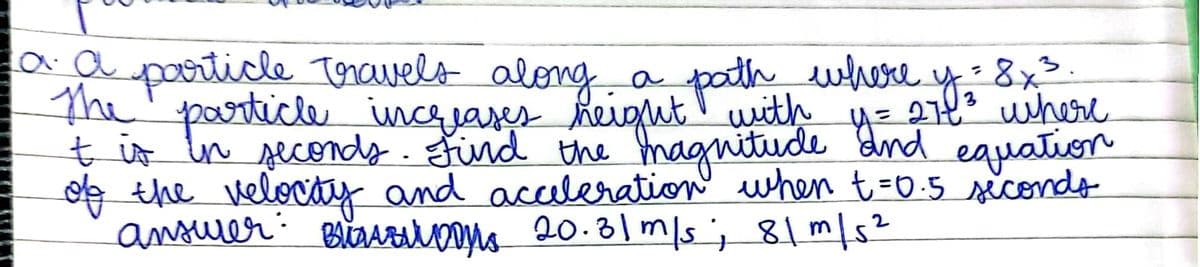 a. a particle travels along a path where y = 8x³.
The particle increases height with y = 27t³ where
t is in seconds. Find the magnitude and equation
of the velocity and acceleration when t=0.5 seconds
answer: 20.31 m/s ; 81 m/s²